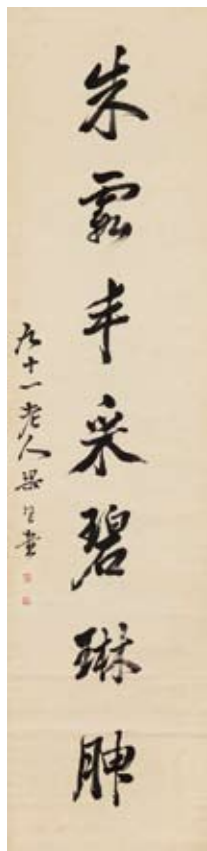 朱霞丰采碧琳腴
九十一老人梁同書